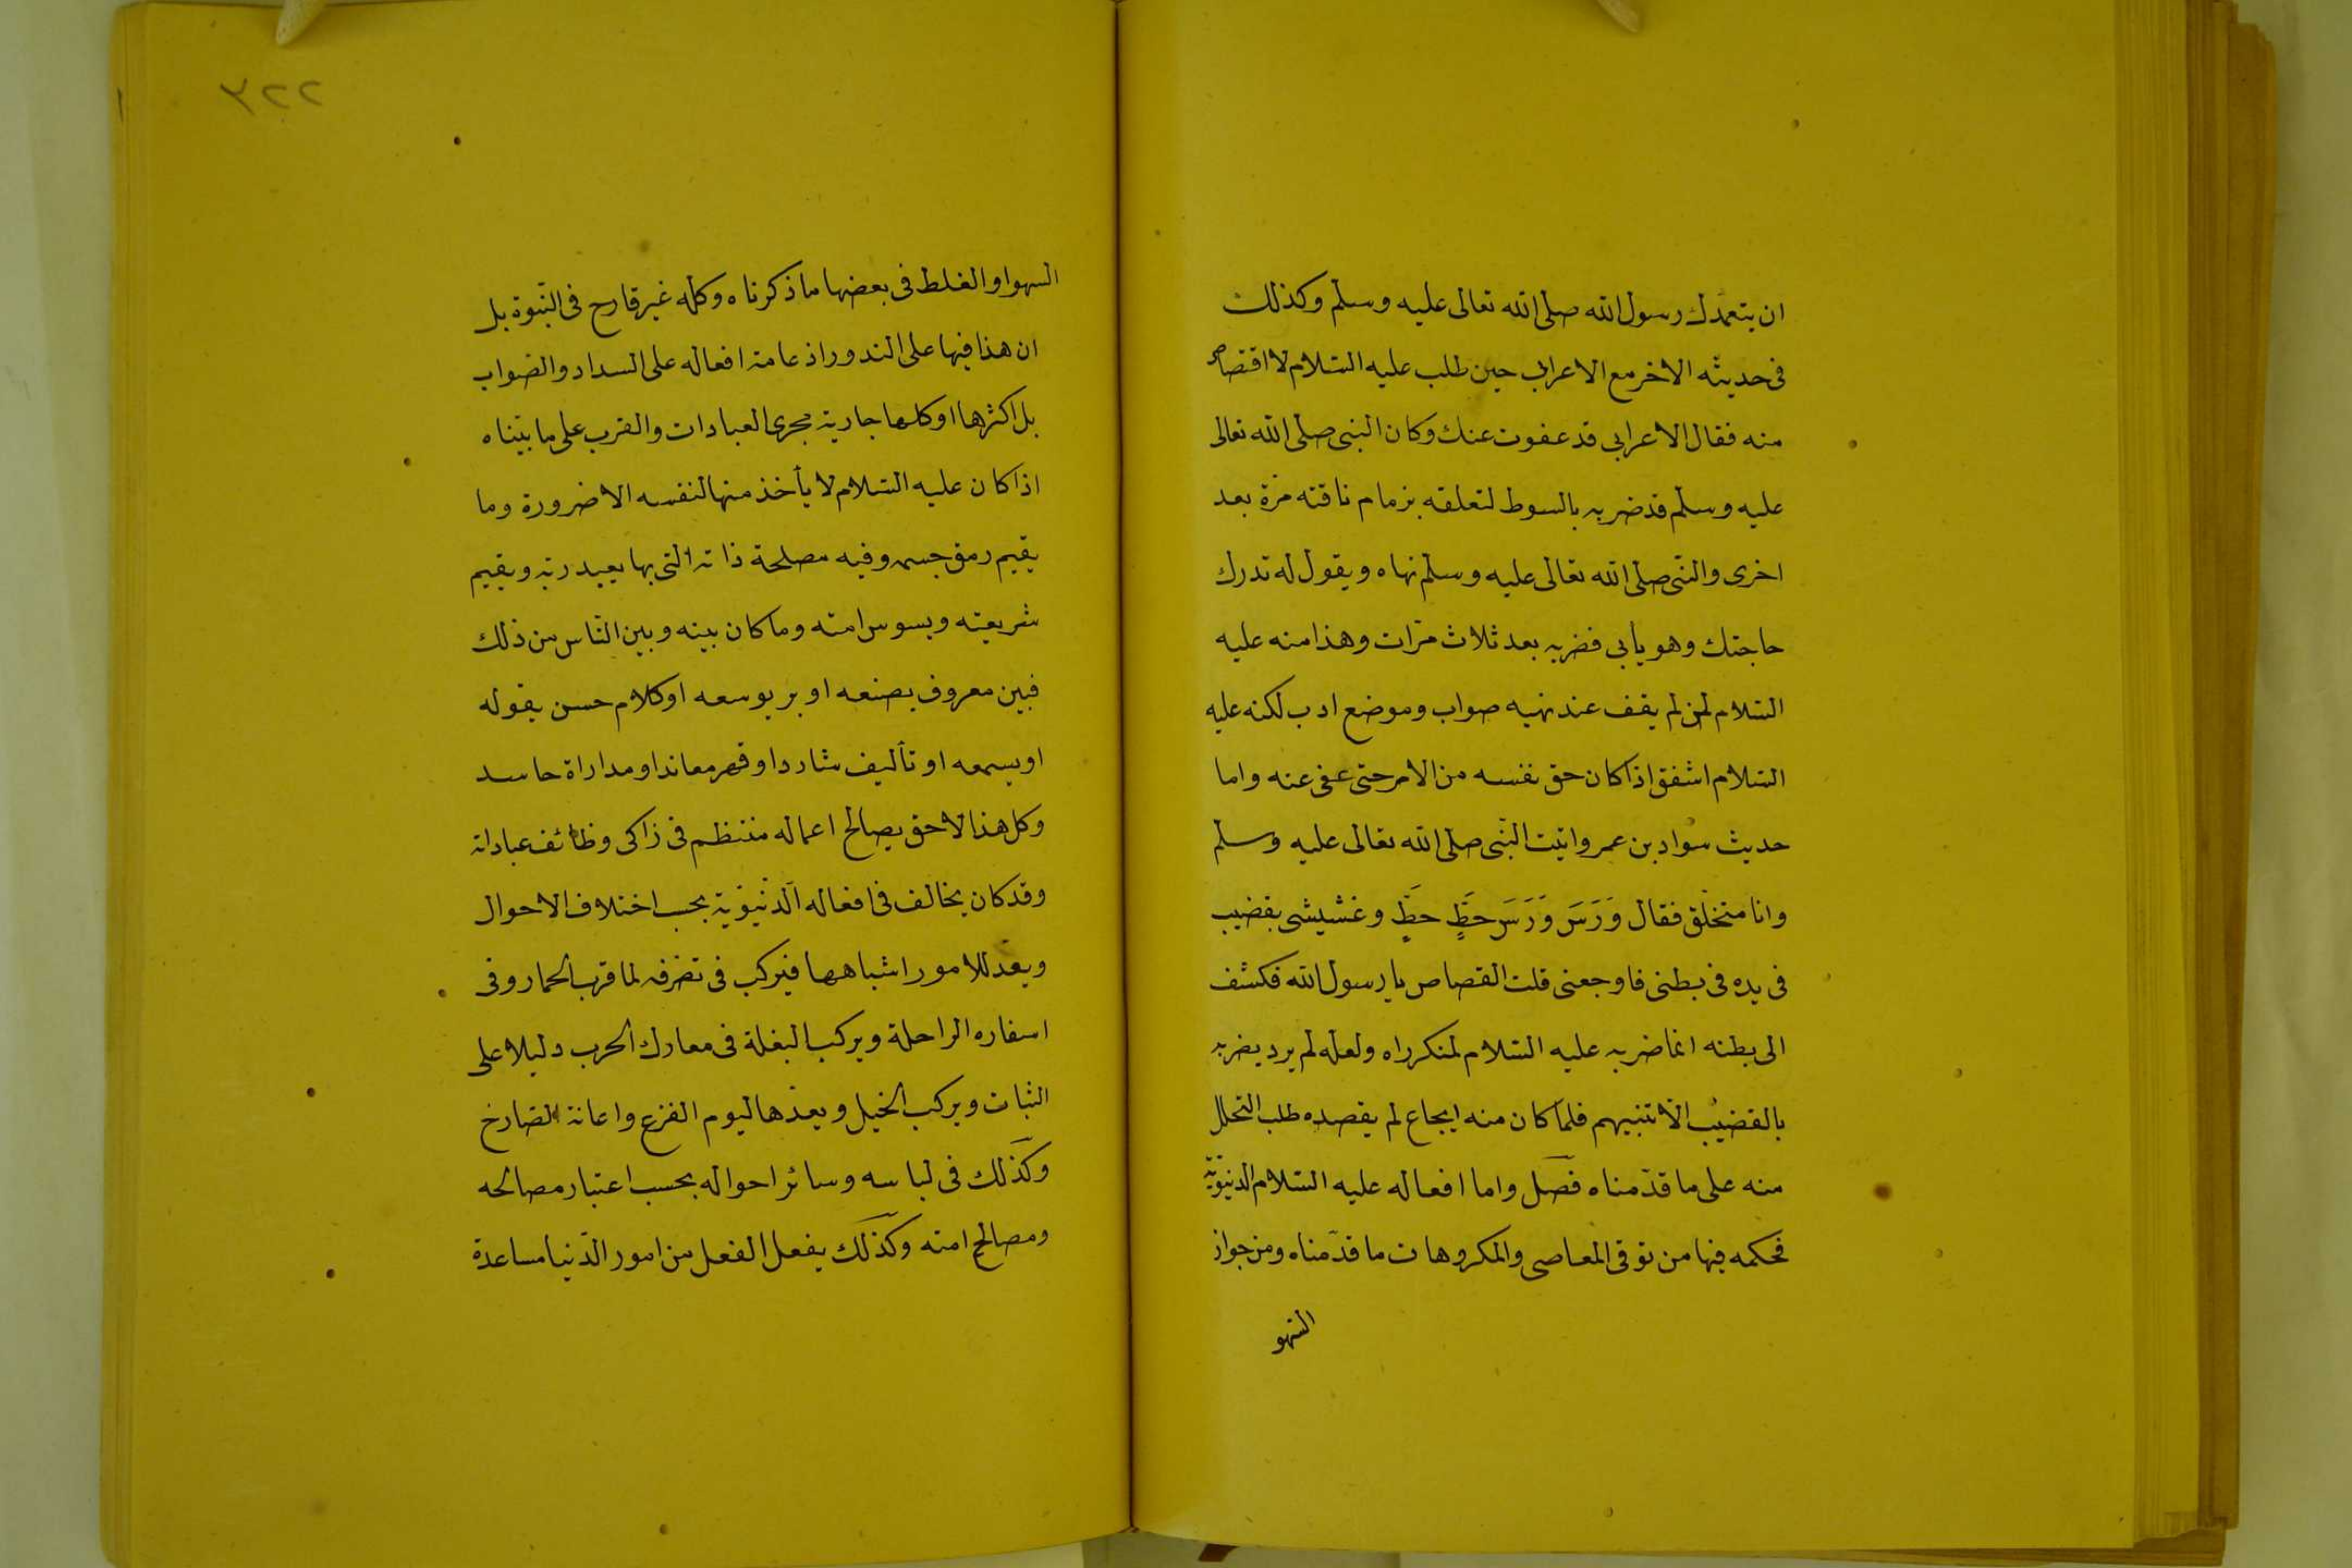 ان يتعمدك رسول الله صلى الله تعالى عليه وسلم وكذلك
فى حديثه الاخر مع الاعرابى حين طلب عليه السّلام لااقتصاص
منه فقال الاعرابى قد عفوت عنك وكان النبى صلى الله تعالى
عليه وسلّم قد ضربه بالسوط لتعلقه بزمام ناقته مرّة بعد
اخرى والنّبى صلى الله تعالى عليه وسلّم نهاه ويقول له تدرك
حاجتك وهو يأبى فضربه بعد ثلاث مرّات وهذا منه عليه
السّلام لمن لم يقف عند نهيه صواب وموضع ادب لكنه عليه
السّلام اشفق اذ اكان حق نفسه من الامر حتى عفى عنه واما
حديث سواد بن عمرو اتيت النّبى صلى الله تعالى عليه وسلم
وانا متخلّق فقال وَرَسَ وَرَسَ حطِّ حطِّ وغشيشى بقضيب
فى يده فى بطنى فاوجعنى قلت القصاص يا رسول الله فكشف
الى بطنه انما ضربه عليه السّلام لمنكر راه ولعله لم يرد يضربه
بالقضيب الّا تنبيهم فلمّا كان منه ايجاع لم يقصده طلب التحلل
منه على ما قدّمناه فصل واما افعاله عليه السّلام الدنيويّة
فحكمه فيها من توقى المعاصى والمكروهات ما قدّمناه ومن جواز
السّهو
٣٢٢
السهو او الغلط فى بعضها ما ذكرناه وكله غير قارح فى النّبوة بل
ان هذا فيها على الندور اذ عامة افعاله على السداد والصّواب
بل اكثرها او كلها جارية مجرى العبادات والقرب على ما بيّناه
اذا كان عليه السّلام لا يأخذ منها لنفسه الا ضرورة وما
يقيم رمق جسمه وفيه مصلحة ذاته التى بها يعبد ربّه ويقيم
شريعته ويسوس امته وما كان بينه وبين النّاس من ذلك
فبين معروف يصنعه او بر يوسعه او كلام حسن يقوله
او يسمعه او تأليف شارد او قهر معاند او مداراة حاسد
وكل هذا لاحق بصالح اعماله منتظم فى زاكى وظائف عباداته
وقد كان يخالف فى افعاله الدّنيويّة بحسب اختلاف الاحوال
ويعدّ للامور اشباهها فيركب فى تصرفه لما قرب الحمار وفى
اسفاره الراحلة ويركب البغلة فى معارك الحرب دليلا على
الثبات ويركب الخيل ويعدّها ليوم الفزع واعانة الصّارخ
وكذلك فى لباسه وسائر احواله بحسب اعتبار مصالحه
ومصالح امته وكذلك يفعل الفعل من امور الدّنيا مساعدة